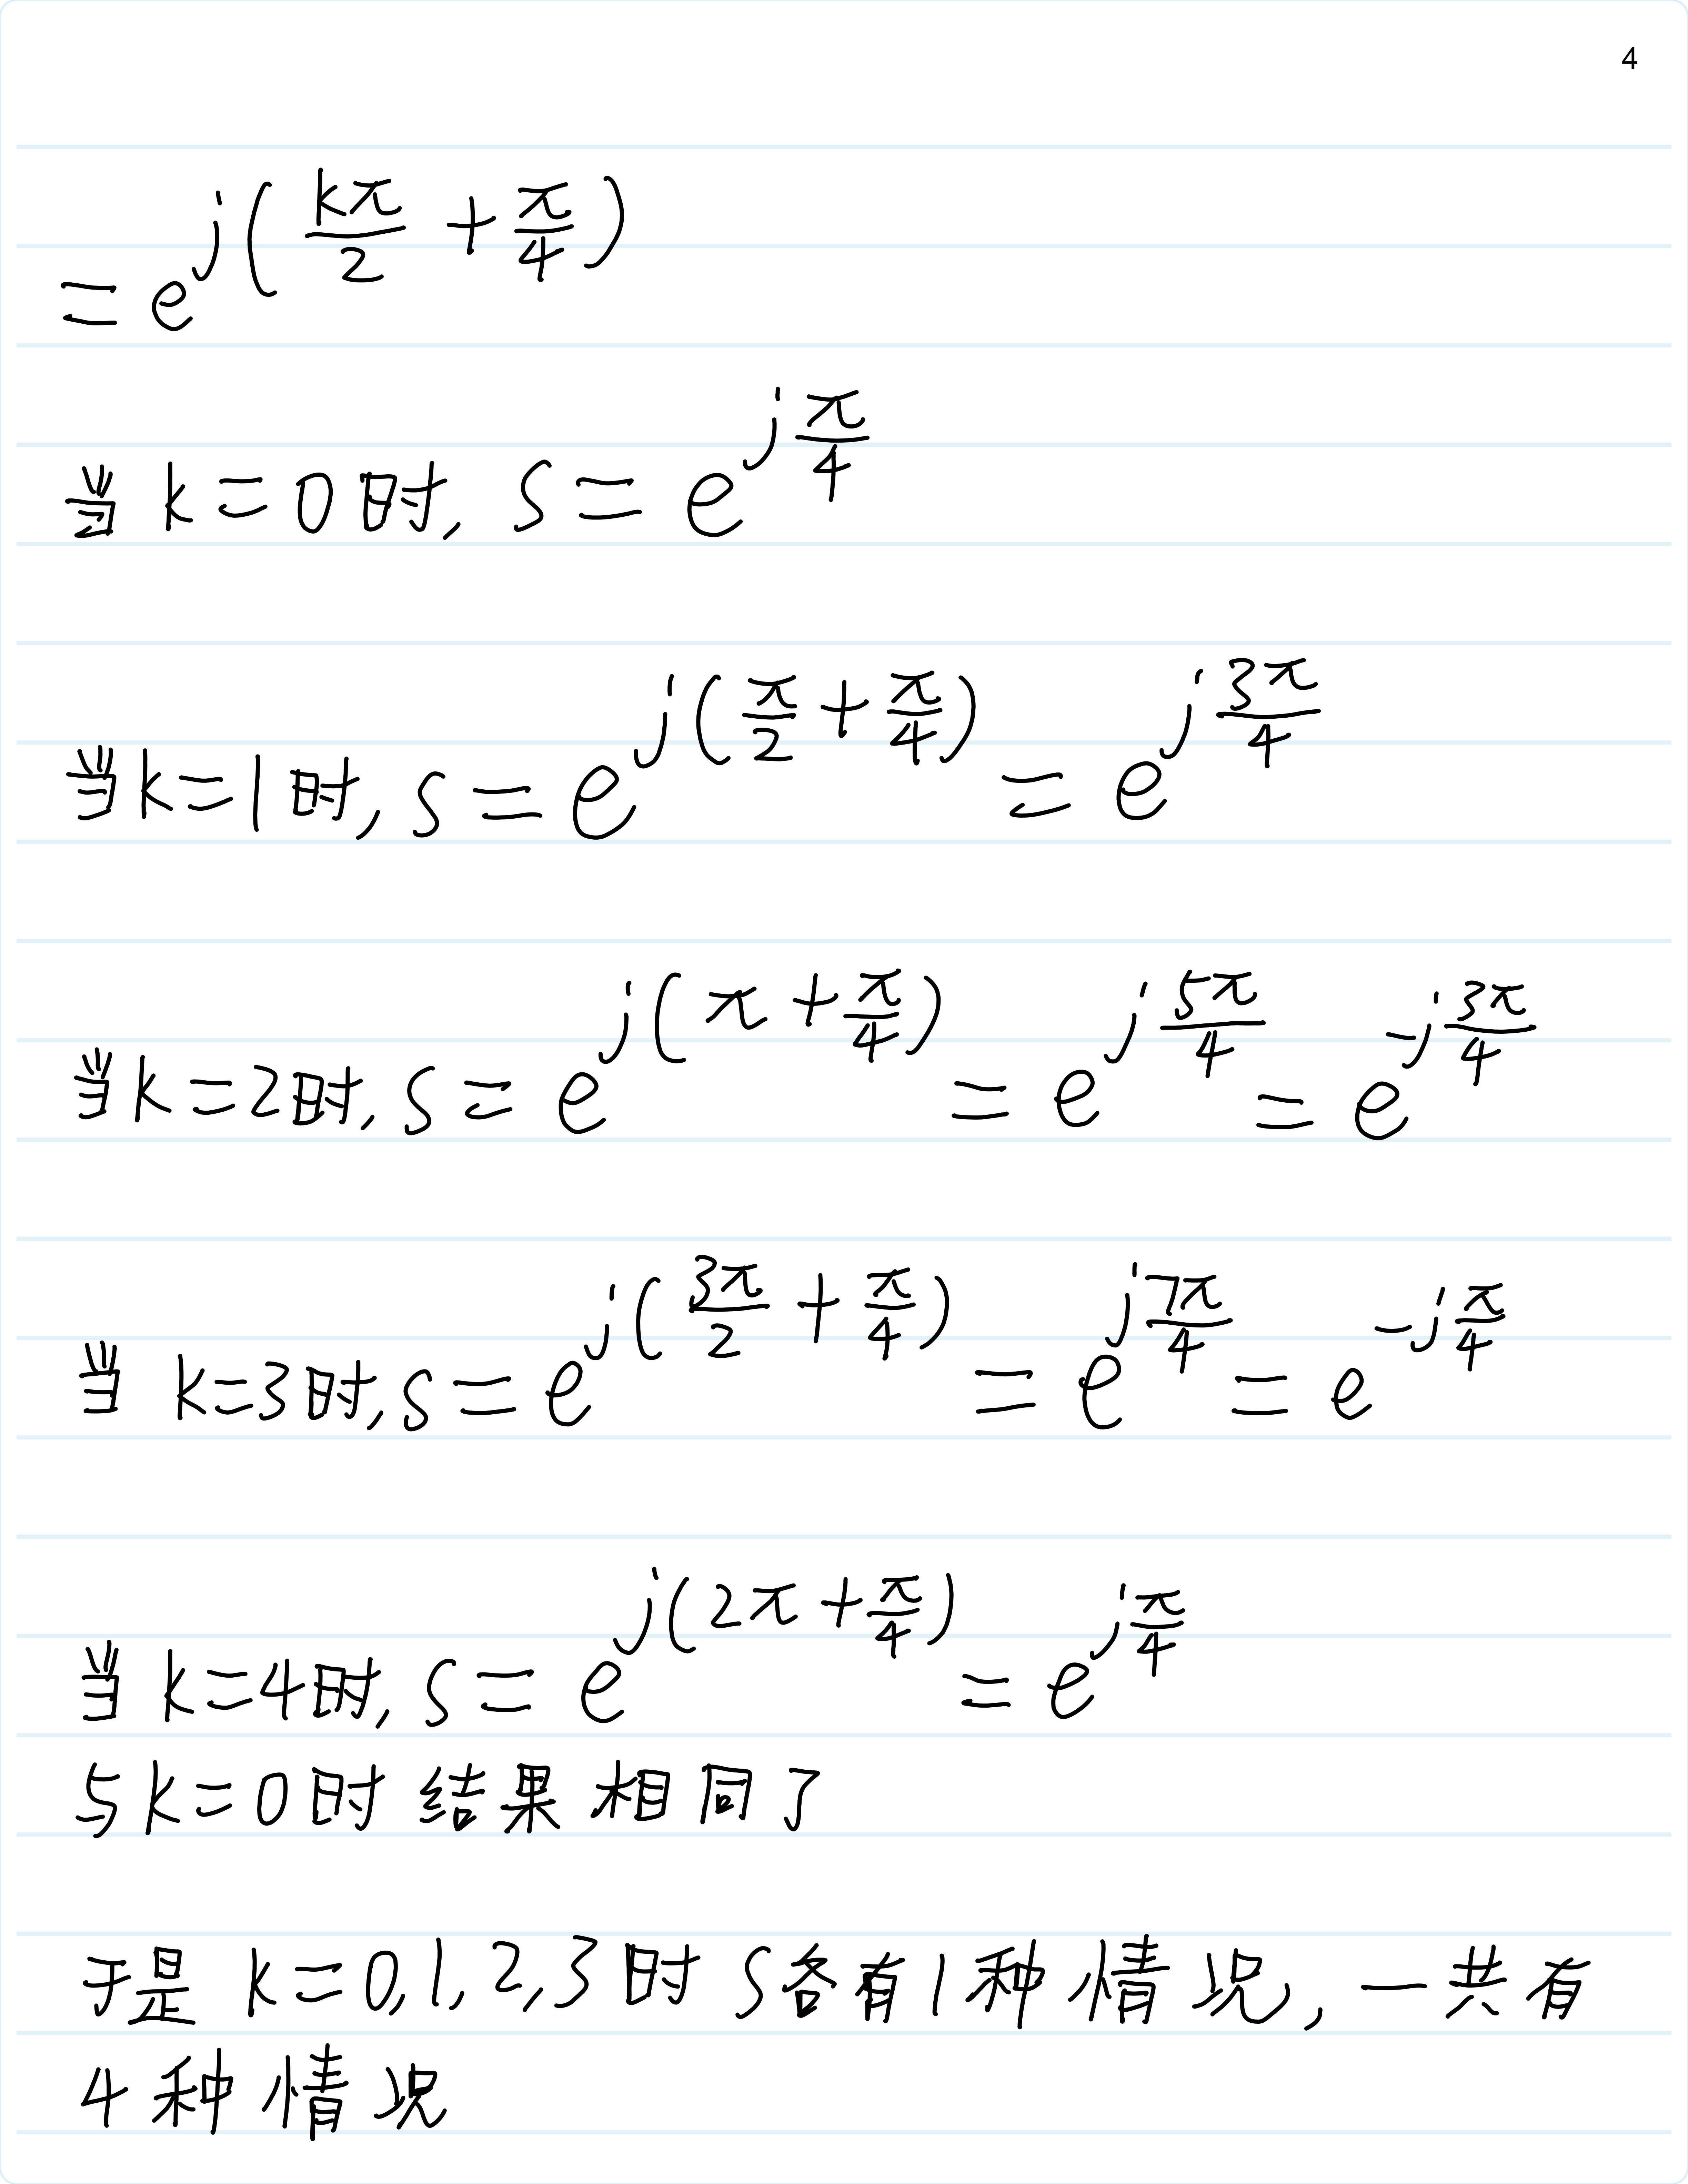 4
= e^{j(\frac{kπ}{2} + \frac{π}{4})}
当 k = 0 时, S = e^{j\frac{π}{4}}
当 k = 1 时, S = e^{j(\frac{π}{2} + \frac{π}{4})} = e^{j\frac{3π}{4}}
当 k = 2 时, S = e^{j(π + \frac{π}{4})} = e^{j\frac{5π}{4}} = e^{-j\frac{3π}{4}}
当 k = 3 时, S = e^{j(\frac{3π}{2} + \frac{π}{4})} = e^{j\frac{7π}{4}} = e^{-j\frac{π}{4}}
当 k = 4 时, S = e^{j(2π + \frac{π}{4})} = e^{j\frac{π}{4}}
与 k = 0 时 结果相同了
于是 k = 0, 1, 2, 3 时 S各有1种情况, 一共有
4种情况